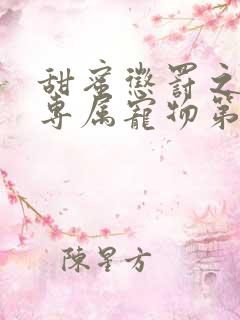 甜蜜懲罰之
專属寵物第
陳星方